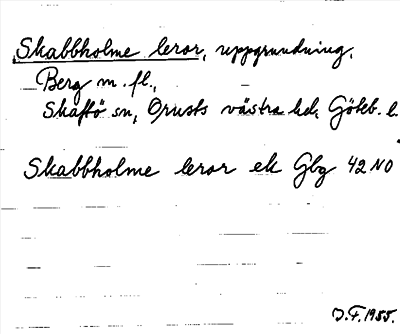 Skabbholme leror, uppgrundning.
Berg m. fl.,
Skaftö sn, Orusts västra hd, Göteb. l.
Skabbholme leror ek Gbg 42 NO
J.F. 1955.